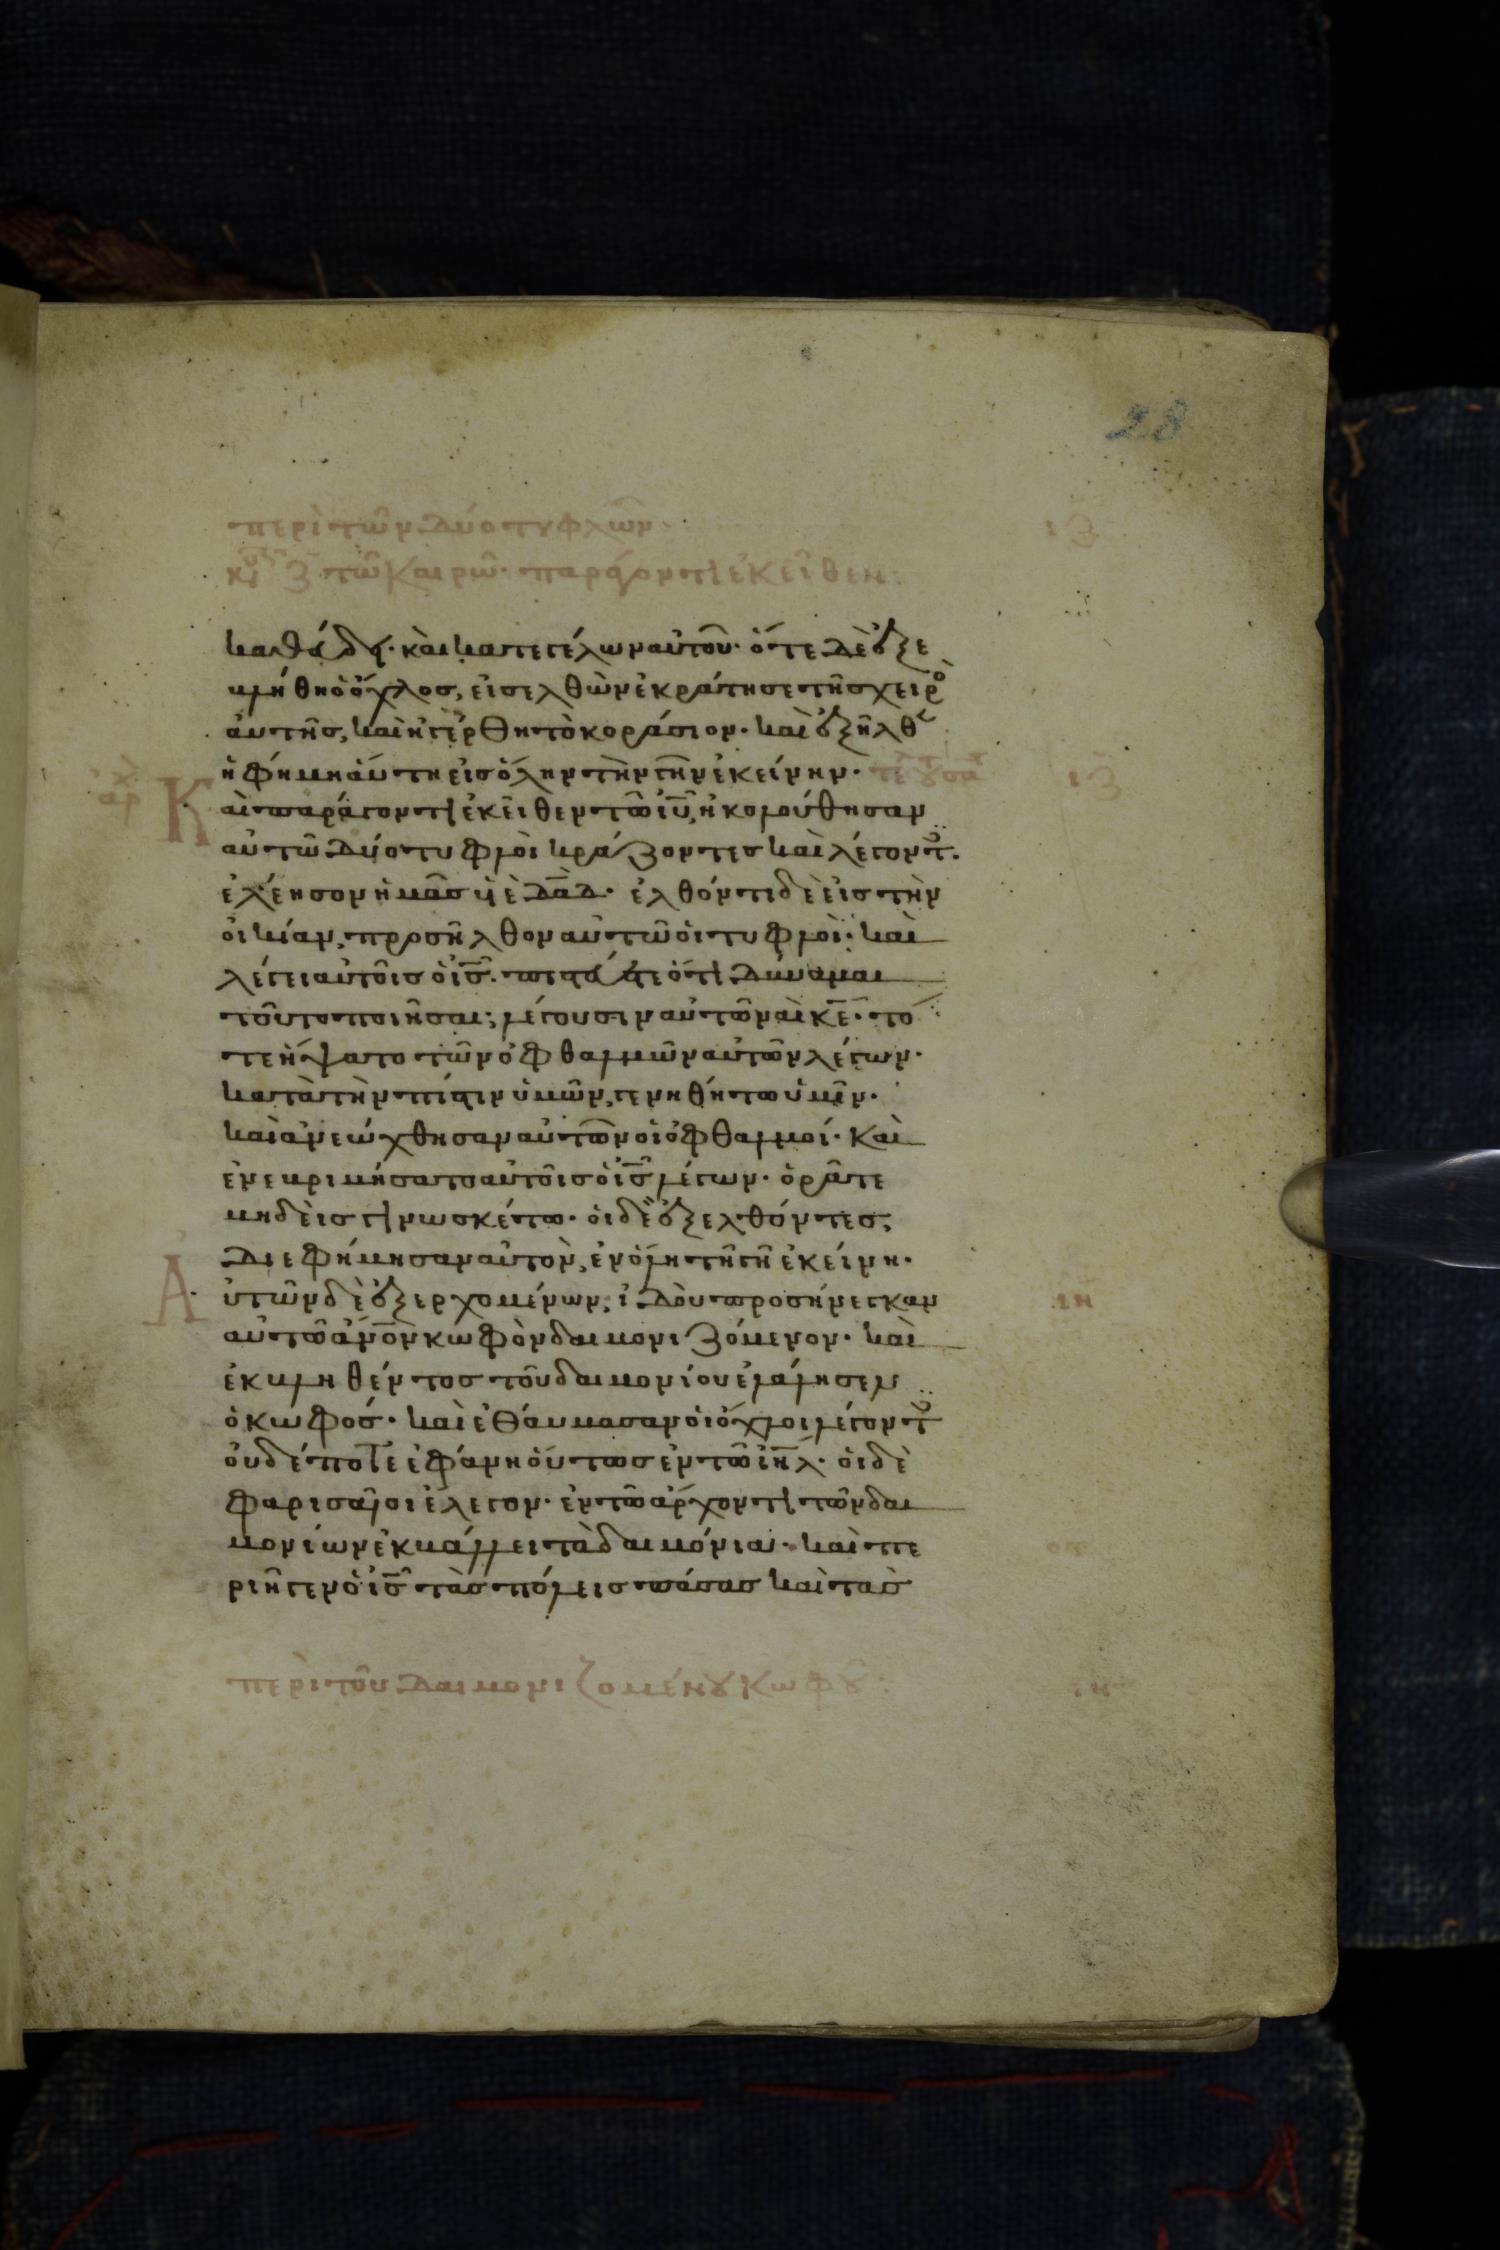 28
περὶ τῶν δύο τυφλῶν· ιζ
κυ ζ τῶ καιρῶ· παράγοντι ἐκεῖθεν:
καθεύδει· καὶ κατεγέλων αὐτοῦ· ὅτε δὲ ἐξε
βλήθη ὁ ὄχλος, εἰσελθὼν ἐκράτησε τῆς χειρο
αὐτῆς, καὶ ἠγέρθη τὸ κοράσιον· καὶ ἐξῆλθε
ἡ φήμη αὕτη εἰς ὅλην τὴν γῆν ἐκείνην·
ἀρχ Καὶ παράγοντι ἐκεῖθεν τῶ ἰυ, ἠκολούθησαν ιζ
αὐτῶ δύο τυφλοὶ κράζοντες καὶ λέγοντ·
ἐλέησον ἡμᾶς υἱὲ δαδ· ἐλθόντι δὲ εἰς τὴν
οἰκίαν, προσῆλθον αὐτῶ οἱ τυφλοὶ· καὶ
λέγει αὐτοῖς ὁ ἰς· πιστεύετε ὅτι δύναμαι
τοῦτο ποιῆσαι; λέγουσιν αὐτῶ ναὶ κε· το
τε ἥψατο τῶν ὀφθαλμῶν αὐτῶν λέγων·
κατὰ τὴν πίστιν ὑμῶν, γενηθήτω ὑμῖν·
καὶ ἀνεώχθησαν αὐτῶν οἱ ὀφθαλμοί· καὶ
ἐνεβριμήσατο αὐτοῖς ὁ ἰς λέγων· ὁρᾶτε
μηδεὶς γινωσκέτω· οἱ δὲ ἐξελθόντες,
διεφήμησαν αὐτὸν, ἐν ὅλη τῆ γῆ ἐκείνη·
Αὐτῶν δὲ ἐξερχομένων, ἰδοὺ προσήνεγκαν ιη
αὐτῶ ἄνον κωφὸν δαιμονιζόμενον· καὶ
ἐκβληθέντος τοῦ δαιμονίου ἐλάλησεν
ὁ κωφός· καὶ ἐθαύμασαν οἱ ὄχλοι λέγοντ
οὐδέποτε ἐφάνη οὕτως ἐν τῶ ἰηλ· οἱ δὲ
φαρισαῖοι ἔλεγον· ἐν τῶ ἄρχοντι τῶν δαι
μονίων ἐκβάλλει τὰ δαιμόνια· καὶ πε
ριῆγεν ὁ ἰς τὰς πόλεις πάσας καὶ τὰς
περὶ τοῦ δαιμονιζομένου κωφοῦ: ιη